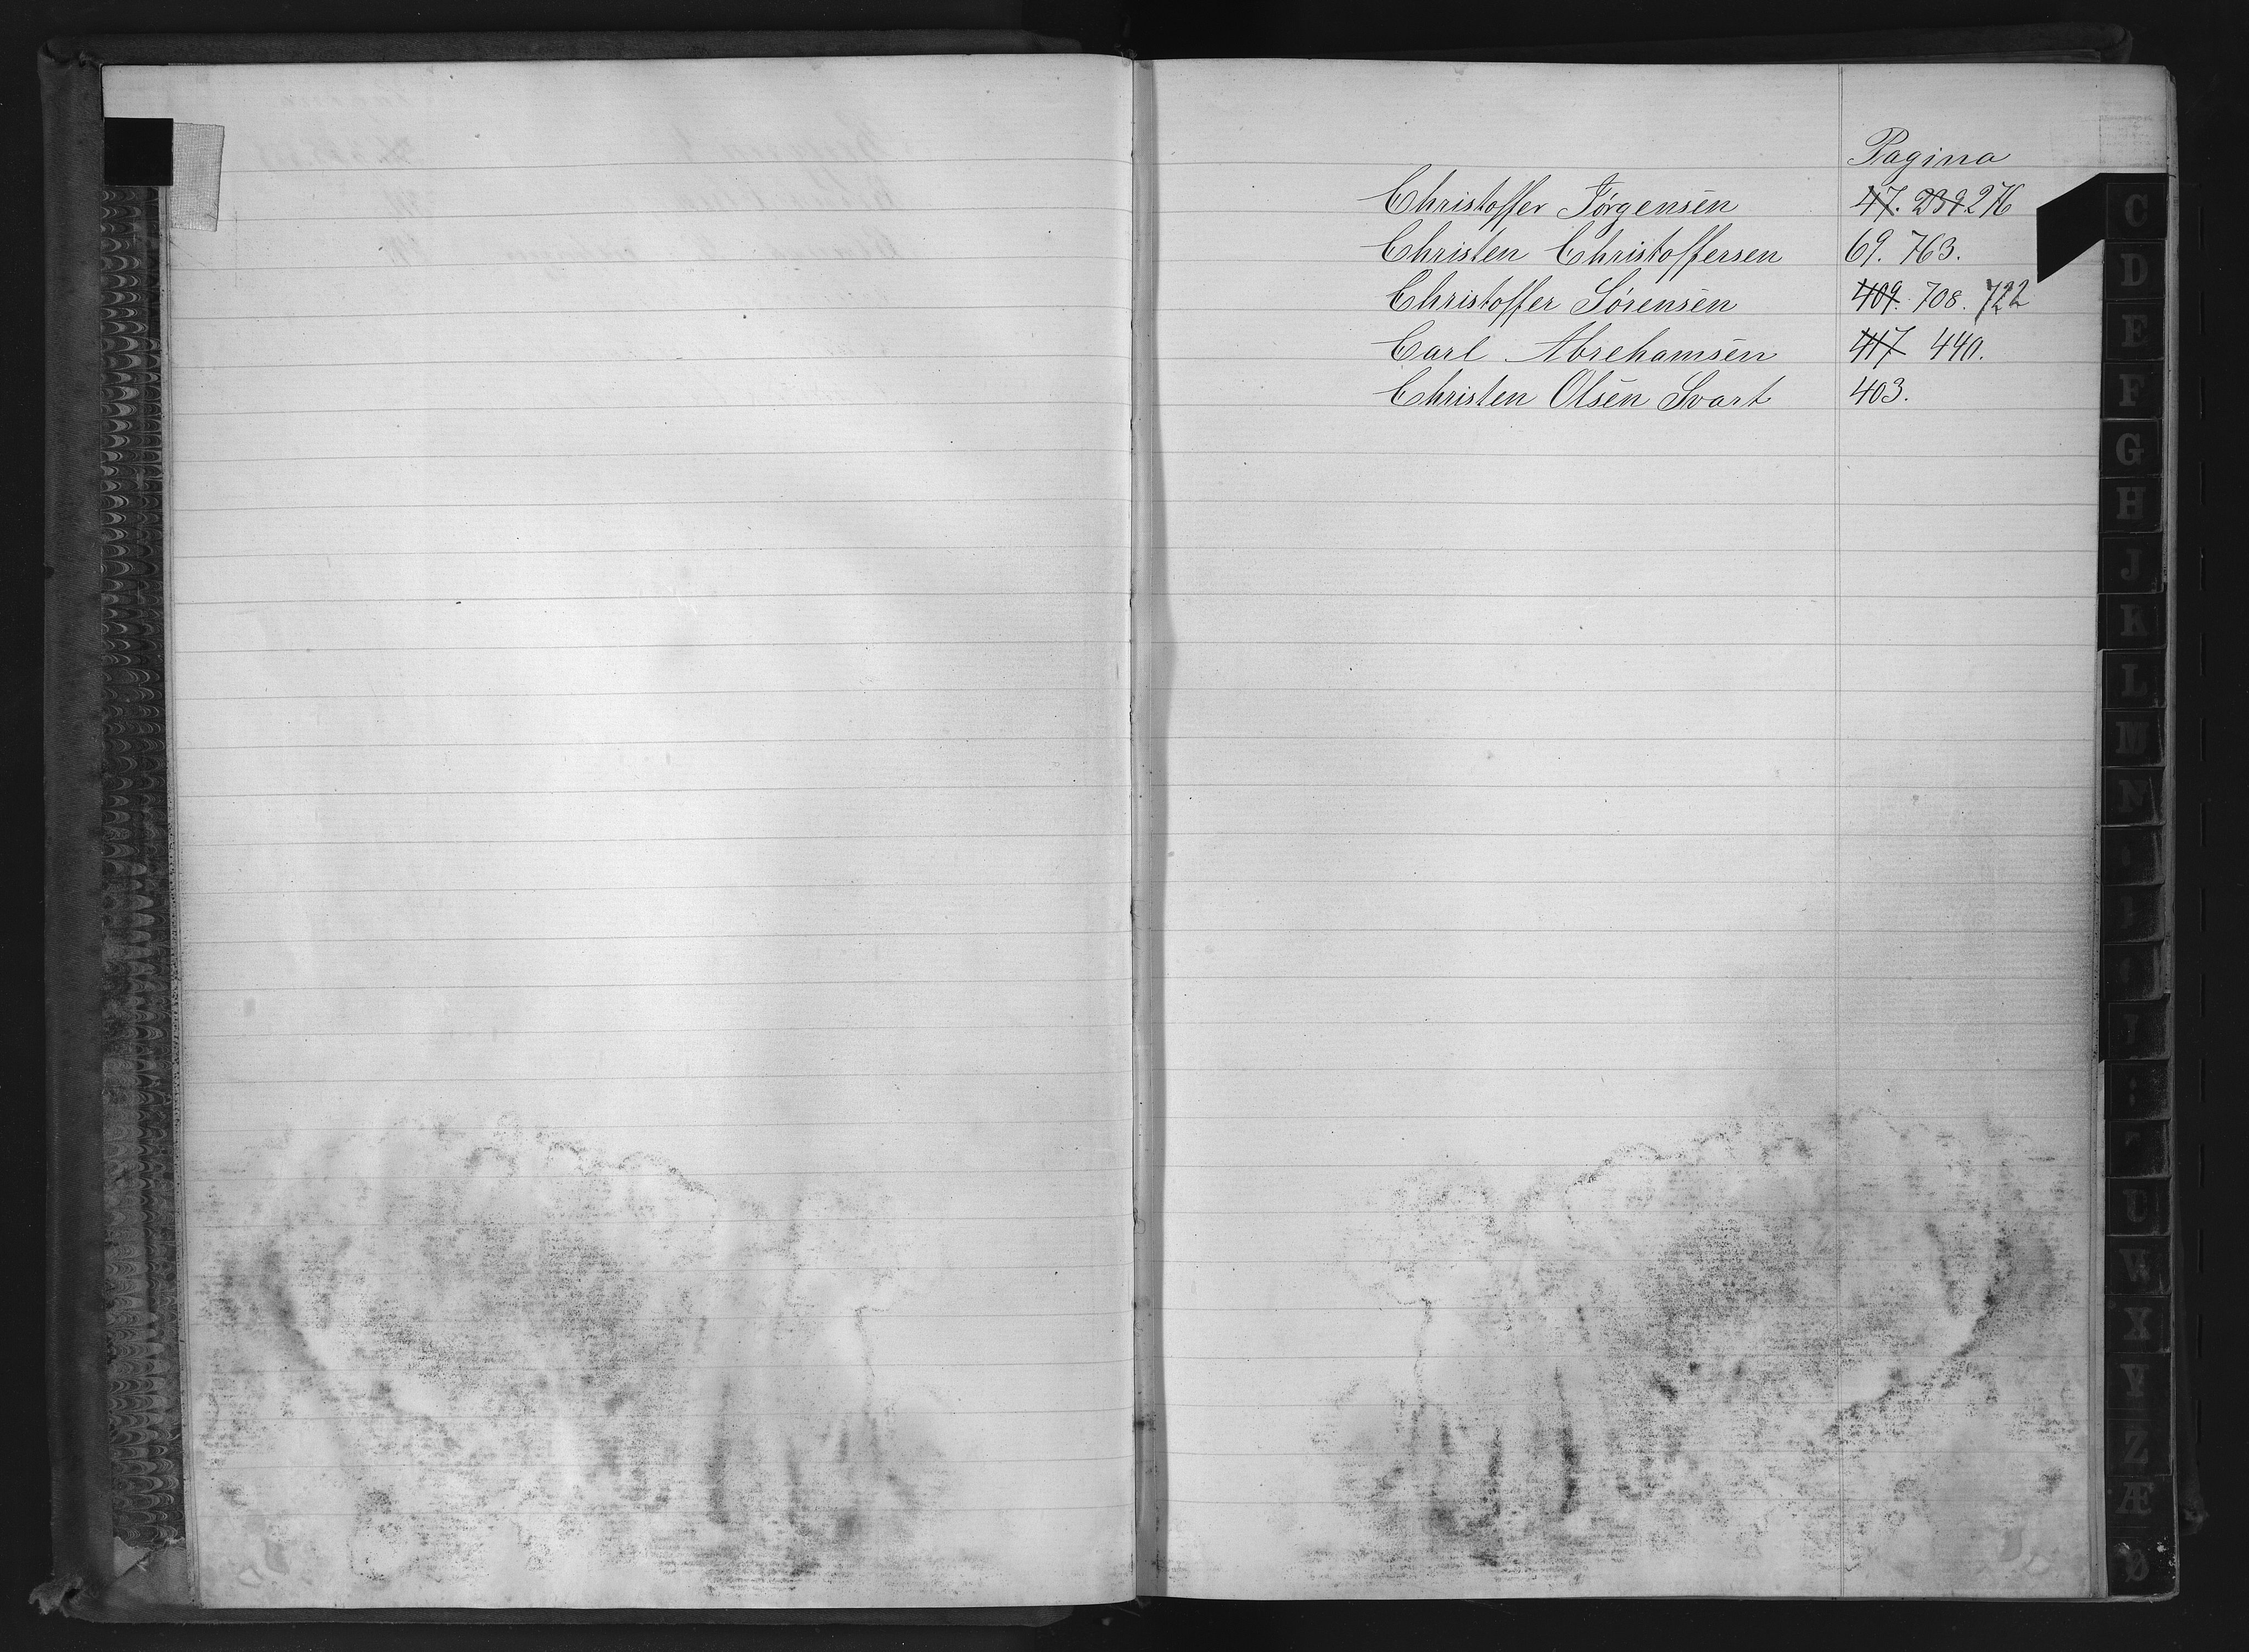 Pagina
Christoffer Jörgensen 47. 239 276
Christen Christoffersen 69. 763.
Christoffer Sörensen 409. 708. 722
Carl Abrehamsen 417 440.
Christen Olsen Svart 403.
C
D
E
F
G
H
J
K
L
M
N
U
W
X
Y
Z
Æ
Ø